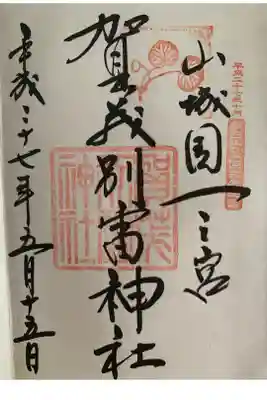 山城国一之宮
賀茂別雷神社
平成二十七年五月十五日
賀茂
別雷
神社